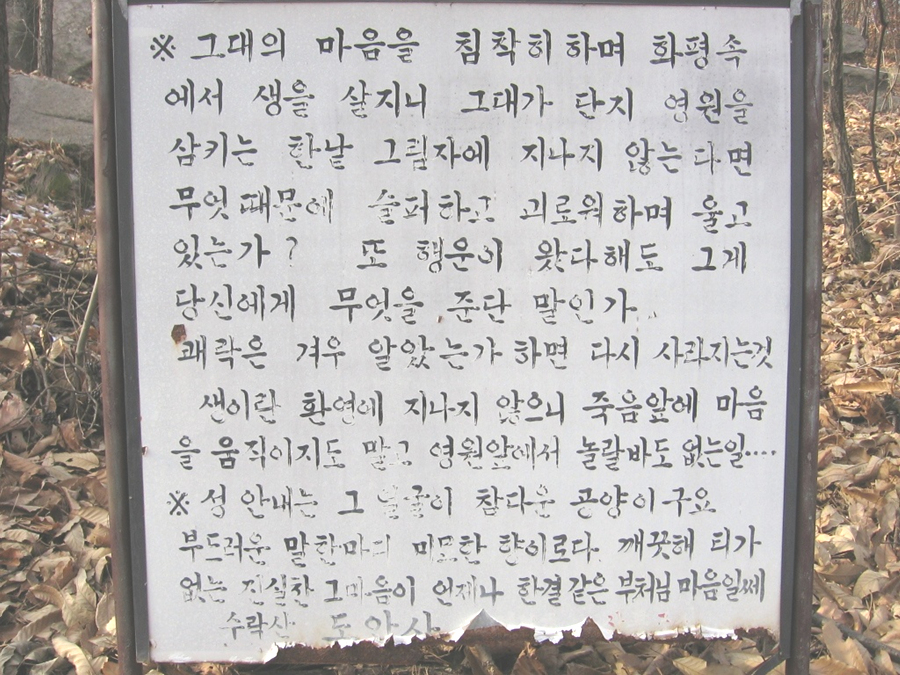 ※ 그대의 마음을 침착히하며 화평속
에서 생을 살지니 그대가 단지 영원을
삼키는 한낱 그림자에 지나지 않는다면
무엇때문에 슬퍼하고 괴로워하며 울고
있는가? 또 행운이 왔다해도 그게
당신에게 무엇을 준단 말인가.
쾌락은 겨우 알았는가 하면 다시 사라지는것
생이란 환영에 지나지 않으니 죽음앞에 마음
을 움직이지도 말고 영원앞에서 놀랄바도 없는일....
※ 성 안내는 그 얼굴이 참다운 공양이구요
부드러운 말한마디 미묘한 향이로다. 깨끗해 티가
없는 진실한 그마음이 언제나 한결같은 부처님마음일쎄
수락산 도안사